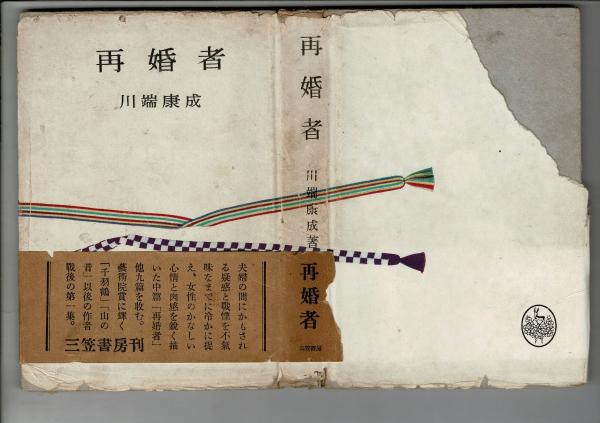 再婚者
川端康成
夫婦の間にかもされ
る疑惑と戰慄を不氣
味なまでに冷かに捉
え、女性のかなしい
心情と肉感を鋭く描
いた中篇「再婚者」
他九篇を收む。
藝術院賞に輝く
「千羽鶴」「山の
音」以後の作者
戰後の第一集。
三笠書房刊
再婚者
川端康成著
再婚者
三笠書房